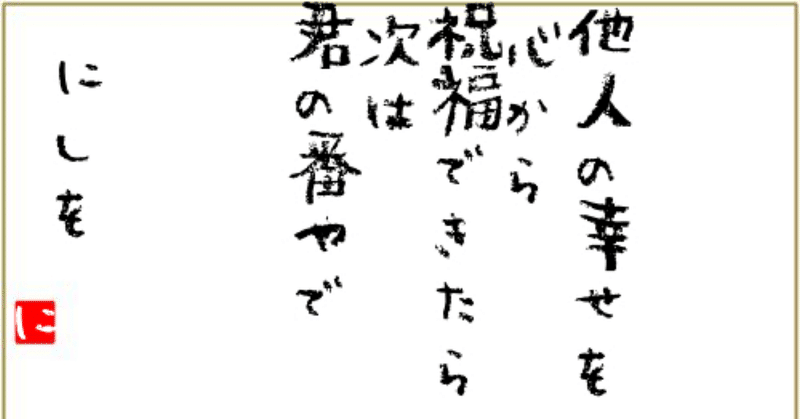 他人の幸せを
心から
祝福できたら
次は
君の番やで
にしを
に